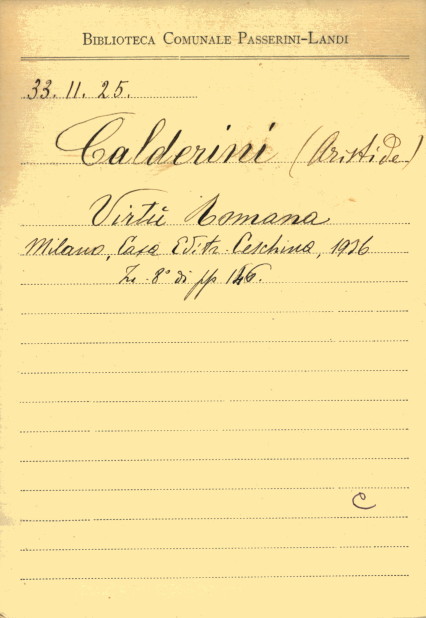 BIBLIOTECA COMUNALE PASSERINI-LANDI
33. 11. 25.
Calderini (Aristide)
Virtù Romana
Milano, Casa Editr. Ceschina, 1936
In 8° di pp 146.
C